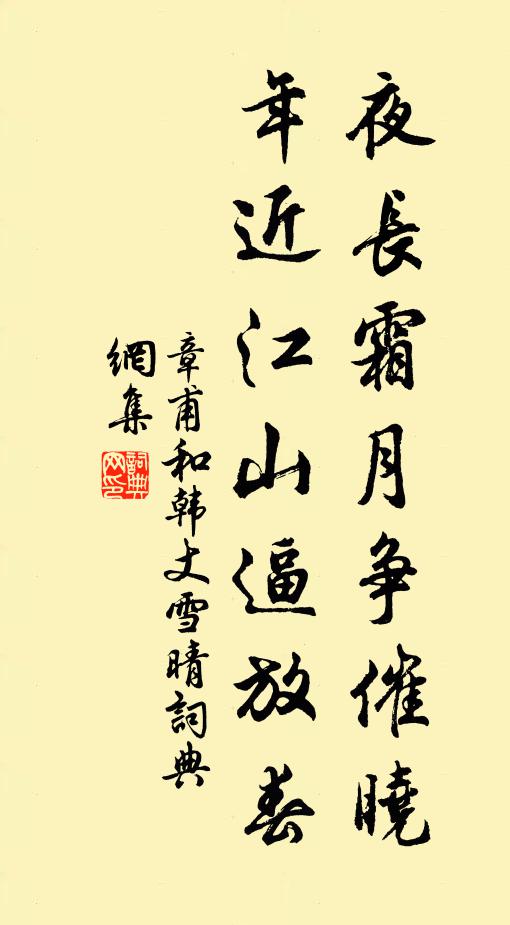 夜長霜月争催曉
年近江山逼放春
章甫和韩丈雪晴詞典
網集
詞典網印